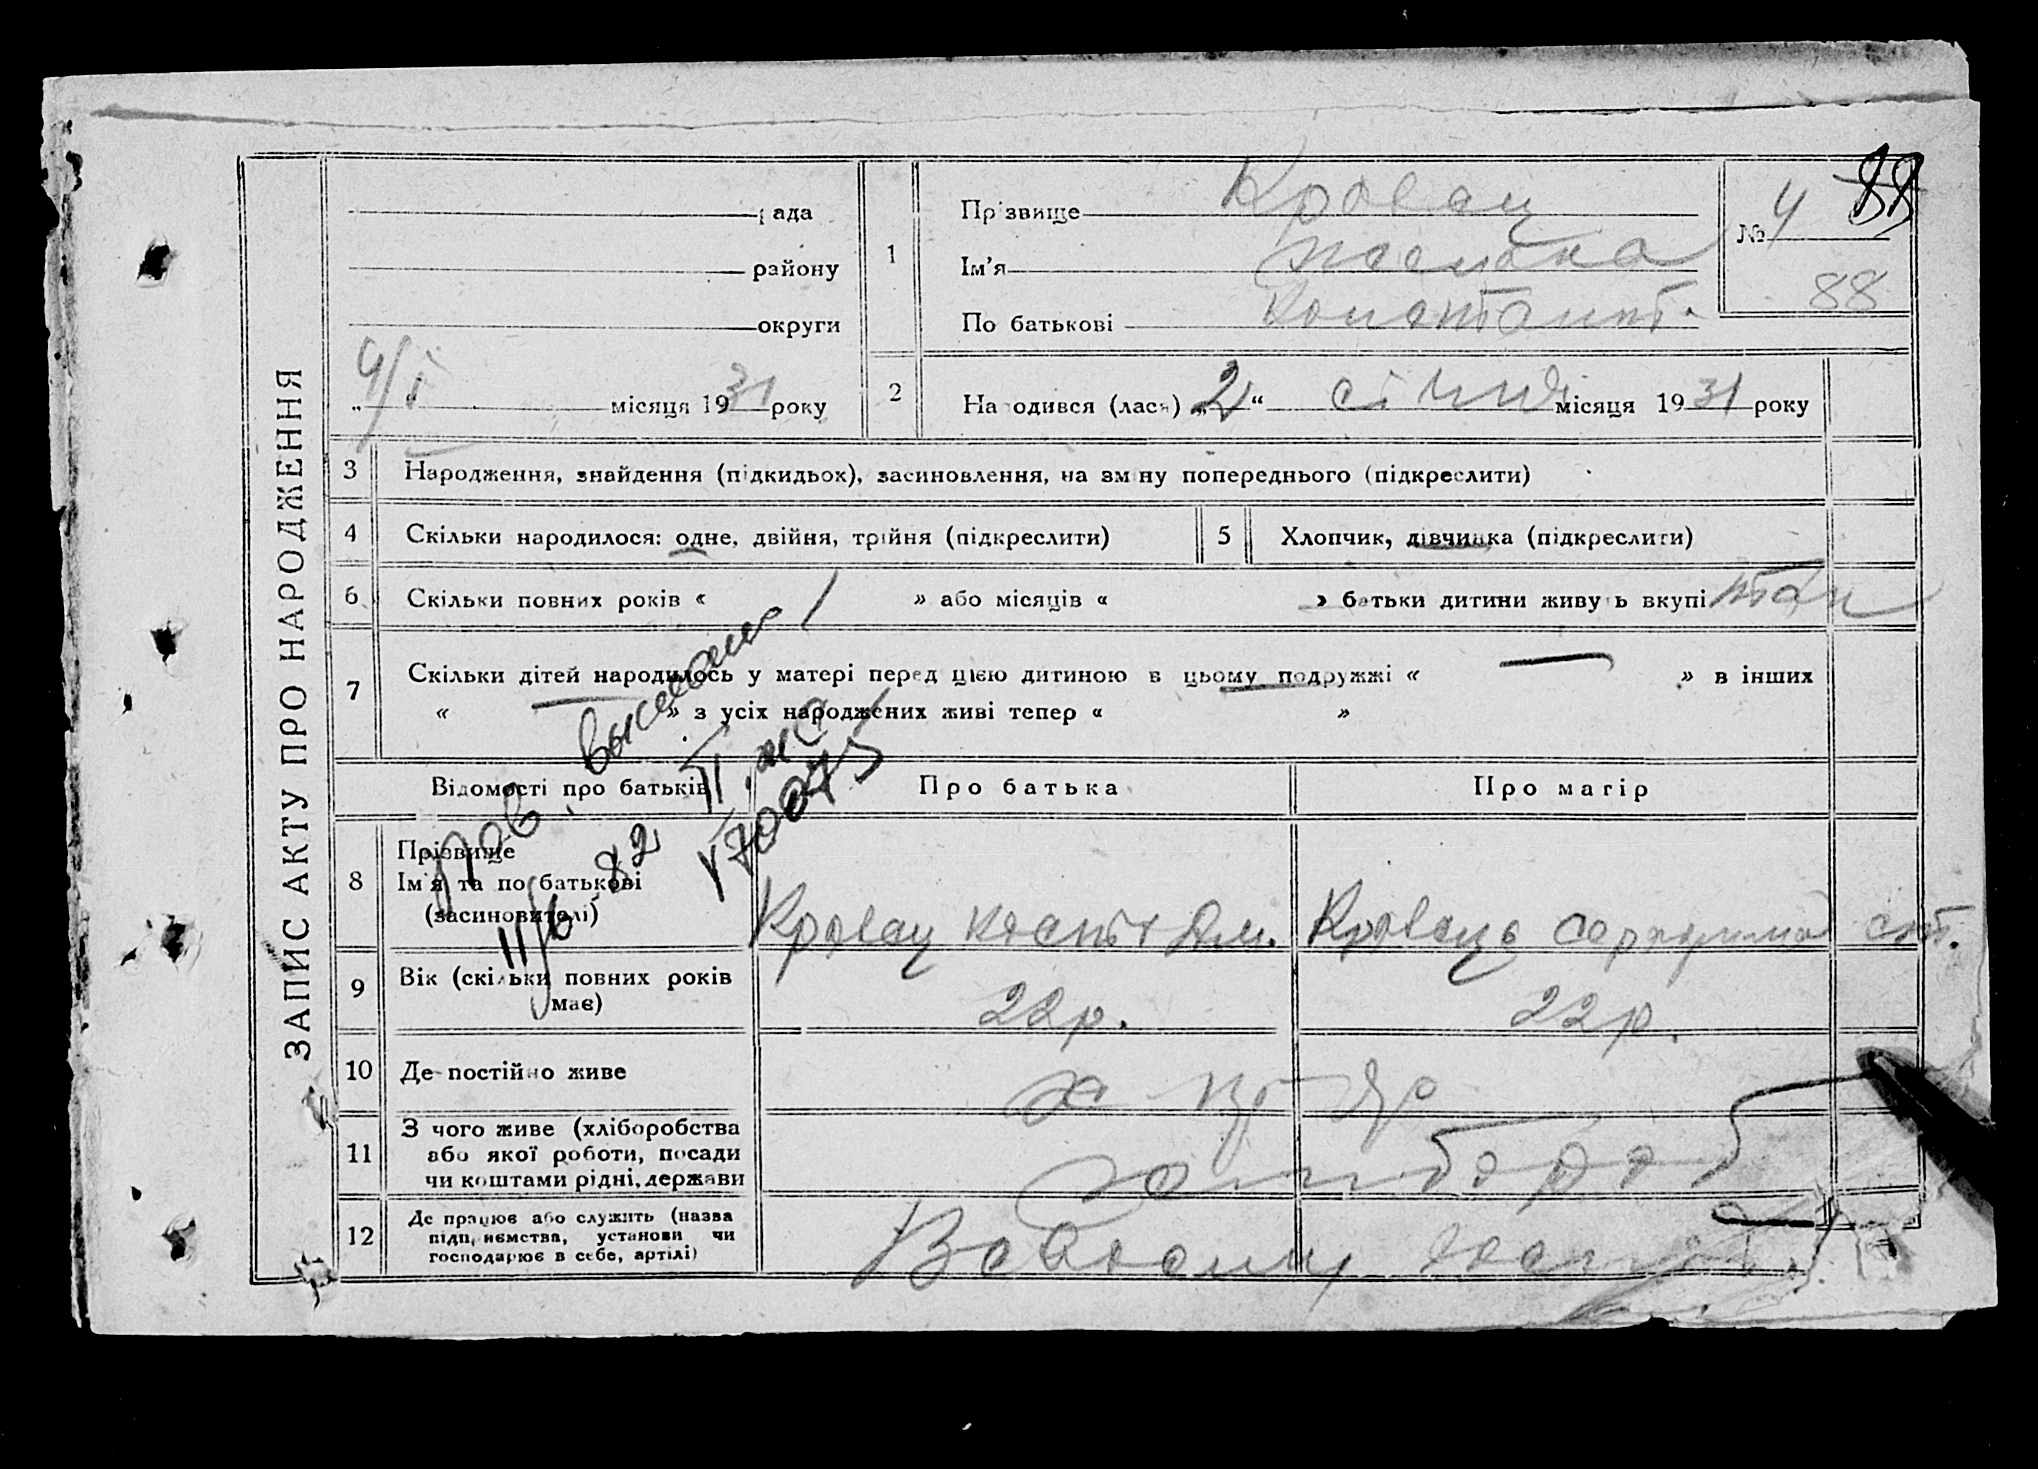 ЗАПИС АКТУ ПРО НАРОДЖЕННЯ
рада
району
округи
4/I місяця 1931 року
1
Прізвище Кравец
Ім'я
По батькові Констант.
№ 4 88
88
2
Народився (лася) „2“ січня місяця 1931 року
3 Народження, знайдення (підкидьох), засиновлення, на зміну попереднього (підкреслити)
4 Скільки народилося: одне, двійня, трійня (підкреслити)
5 Хлопчик, дівчинка (підкреслити)
6 Скільки повних років « » або місяців « » батьки дитини живуть вкупі так
7 Скільки дітей народилось у матері перед цією дитиною в цьому подружжі « — » в інших
« — » з усіх народжених живі тепер « »
Пов. выслано
11/6 82 II жс
V 700475
Відомості про батьків
Про батька
Про матір
8 Прізвище
Ім'я та по батькові
(засиновителі)
Кравец Конст Дм.
Кравець
9 Вік (скільки повних років
має)
22 р.
22 р.
10 Де постійно живе
11 З чого живе (хліборобства
або якої роботи, посади
чи коштами рідні, держави
12 Де працює або служить (назва
підприємства, установи чи
господарює в себе, артілі)